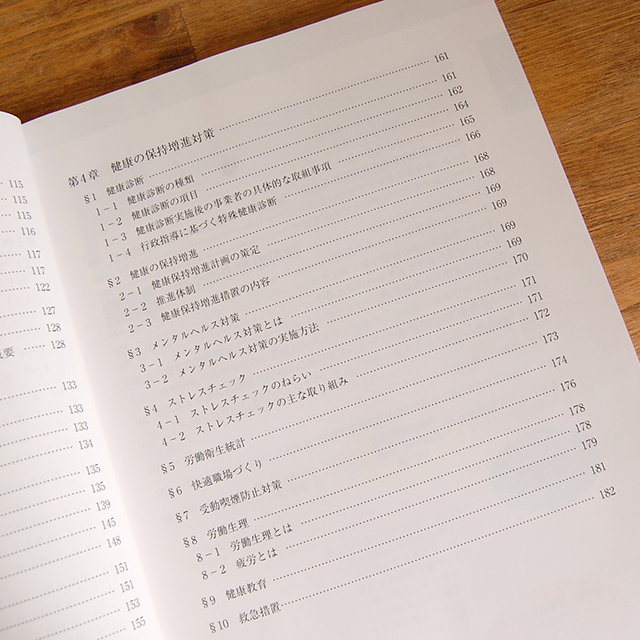 115
115
115
116
117
117
122
127
128
要 128
133
133
133
134
135
135
139
145
148
151
151
153
155
第4章 健康の保持増進対策 161
§1 健康診断 161
1－1 健康診断の種類 162
1－2 健康診断の項目 164
1－3 健康診断実施後の事業者の具体的な取組事項 165
1－4 行政指導に基づく特殊健康診断 166
§2 健康の保持増進 168
2－1 健康保持増進計画の策定 168
2－2 推進体制 169
2－3 健康保持増進措置の内容 169
§3 メンタルヘルス対策 169
3－1 メンタルヘルス対策とは 169
3－2 メンタルヘルス対策の実施方法 170
§4 ストレスチェック 171
4－1 ストレスチェックのねらい 171
4－2 ストレスチェックの主な取り組み 172
§5 労働衛生統計 173
§6 快適職場づくり 174
§7 受動喫煙防止対策 176
§8 労働生理 178
8－1 労働生理とは 178
8－2 疲労とは 179
§9 健康教育 181
§10 救急措置 182